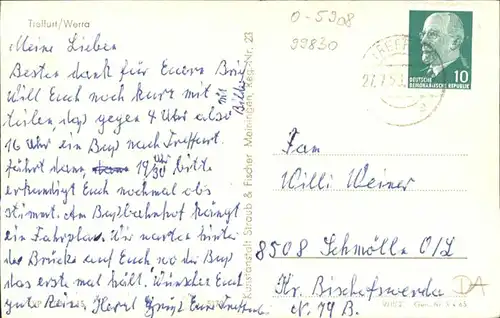 Treffurt/Werra
Meine Lieben
Besten dank für Euern Brief
mit Bilder
Will Euch noch kurz mit
teilen, das gegen 4 Uhr also
16 Uhr ein Bus nach Treffurt
fährt dann, 19/30 Uhr, bitte
erkundigt Euch nochmal obs
stimmt. Am Busbahnhof hängt
ein Fahrplan. Wir warten hinter
der Brücke auf Euch wo der Bus
das erste mal hält. Wünschen Euch
gute Reise. Eure Treffurter
Kunstanstalt Straub & Fischer Meiningen, Reg.-Nr. 23
0-5908
99830
TREFF
27.7.
10
DEUTSCHE
DEMOKRATISCHE REPUBLIK
Fam
Willi Weiner
8508 Schmölln O/L
Kr. Bischofswerda
N. 79 B.
DA